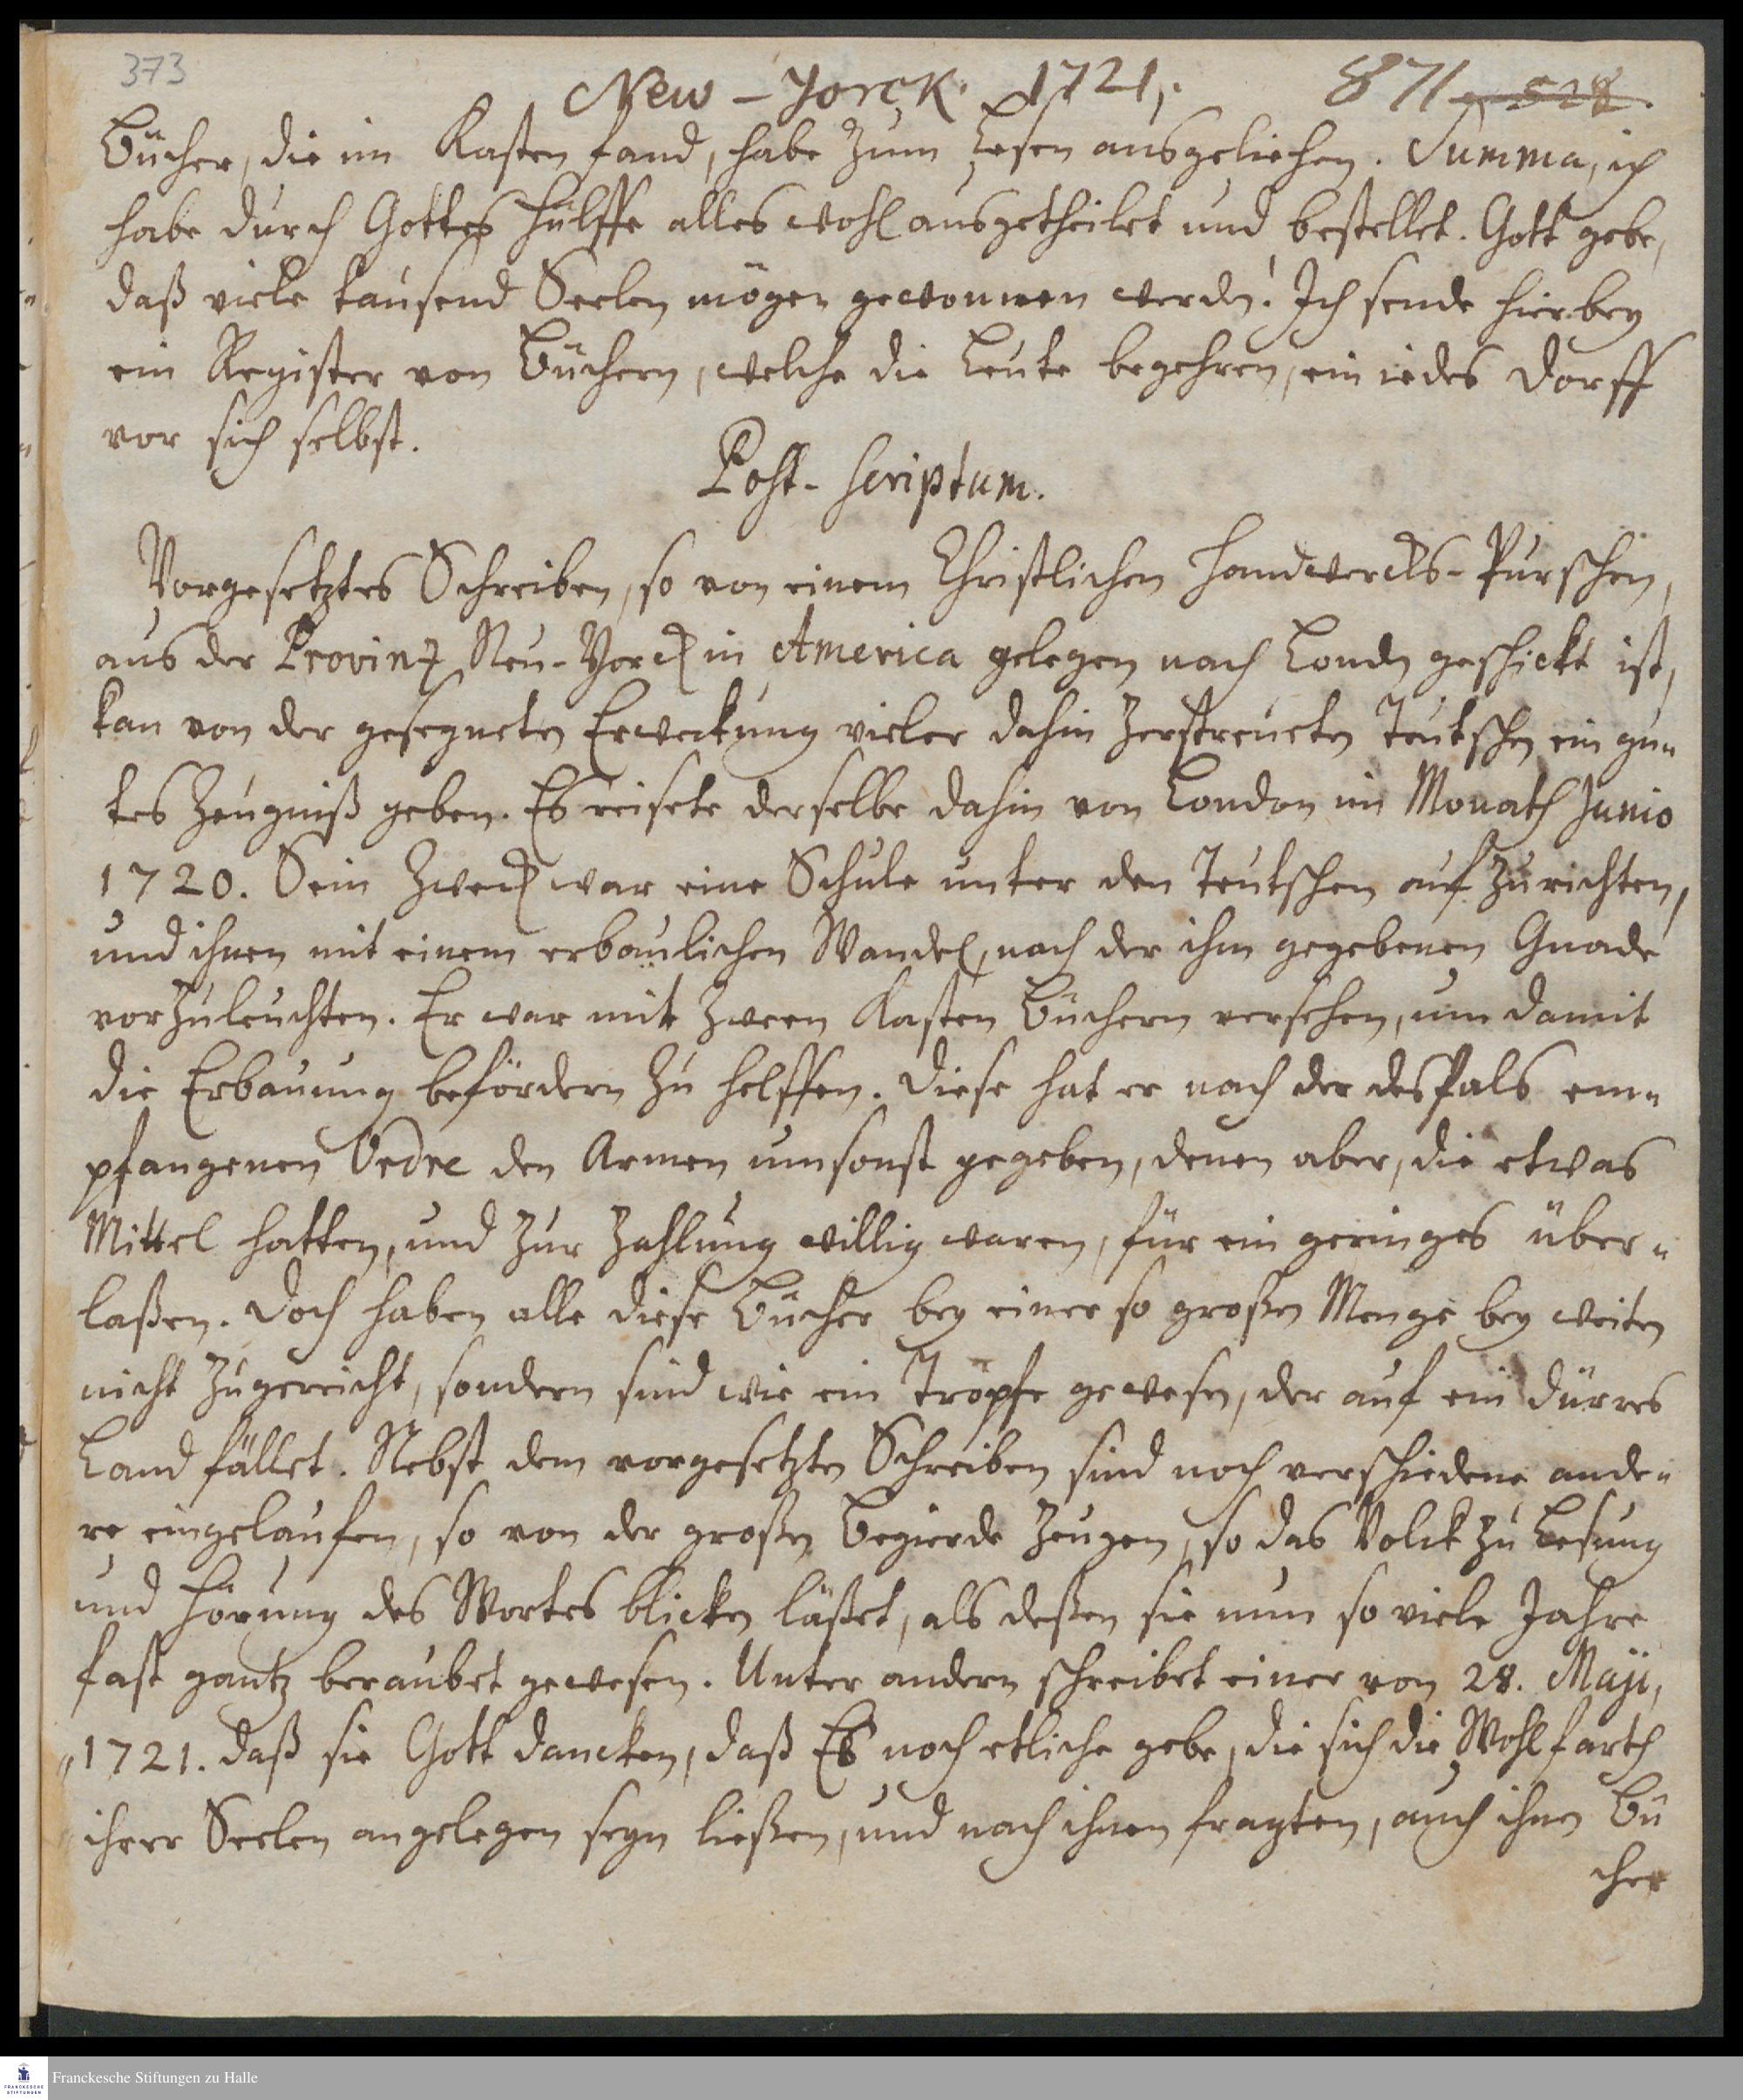 373
New-Yorck. 1721. 871 528.
Bücher, die im Kasten fand, habe zum Lesen ausgeliehen. Summa, ich
habe durch Gottes Hülffe alles wohl ausgetheilet und bestellet. Gott gebe,
daß viele tausend Seelen mögen gewonnen werdn! Ich sende hierbey
ein Register von Büchern, welche die Leute begehren, ein iedes Dorff
vor sich selbst.
Post-scriptum.
Vorgesetztes Schreiben, so von einem Christlichen Handwercks-Purschen,
aus der Provinz Neu-Yorck in America gelegen nach Londn geschickt ist,
kan von der gesegneten Erweckung vieler dahin zerstreueten Teutschen ein gu-
tes Zeugniß geben. Es reisete derselbe dahin von London im Monath Junio
1720. Sein Zweck war eine Schule unter den Teutschen aufzurichten,
und ihnen mit einem erbaulichen Wandel, nach der ihm gegebenen Gnade
vorzuleuchten. Er war mit zween Kasten Büchern versehen, um damit
die Erbauung befördern zu helffen. Diese hat er nach der desfals em-
pfangenen Ordre den Armen umsonst gegeben, denen aber, die etwas
Mittel hatten, und zur Zahlung willig waren, für ein geringes über-
laßen. Doch haben alle diese Bücher bey einer so großen Menge bey weiten
nicht zugereicht, sondern sind wie ein Tropfe gewesen, der auf ein dürres
Land fället. Nebst dem vorgesetzten Schreiben sind noch verschiedene ande-
re eingelaufen, so von der großen Begierde zeugen, so das Volck zu Lesung
und Hörung des Wortes blicken läßet, als deßen sie nun so viele Jahre
fast gantz beraubet gewesen. Unter andern schreibet einer von 28. Maji,
"1721. daß sie Gott dancken, daß Es noch etliche gebe, die sich die Wohlfarth
"ihrer Seelen angelegen seyn ließen, und nach ihnen fragten, auch ihnen Bü
cher
Franckesche Stiftungen zu Halle
FRANCKESCHE STIFTUNGEN